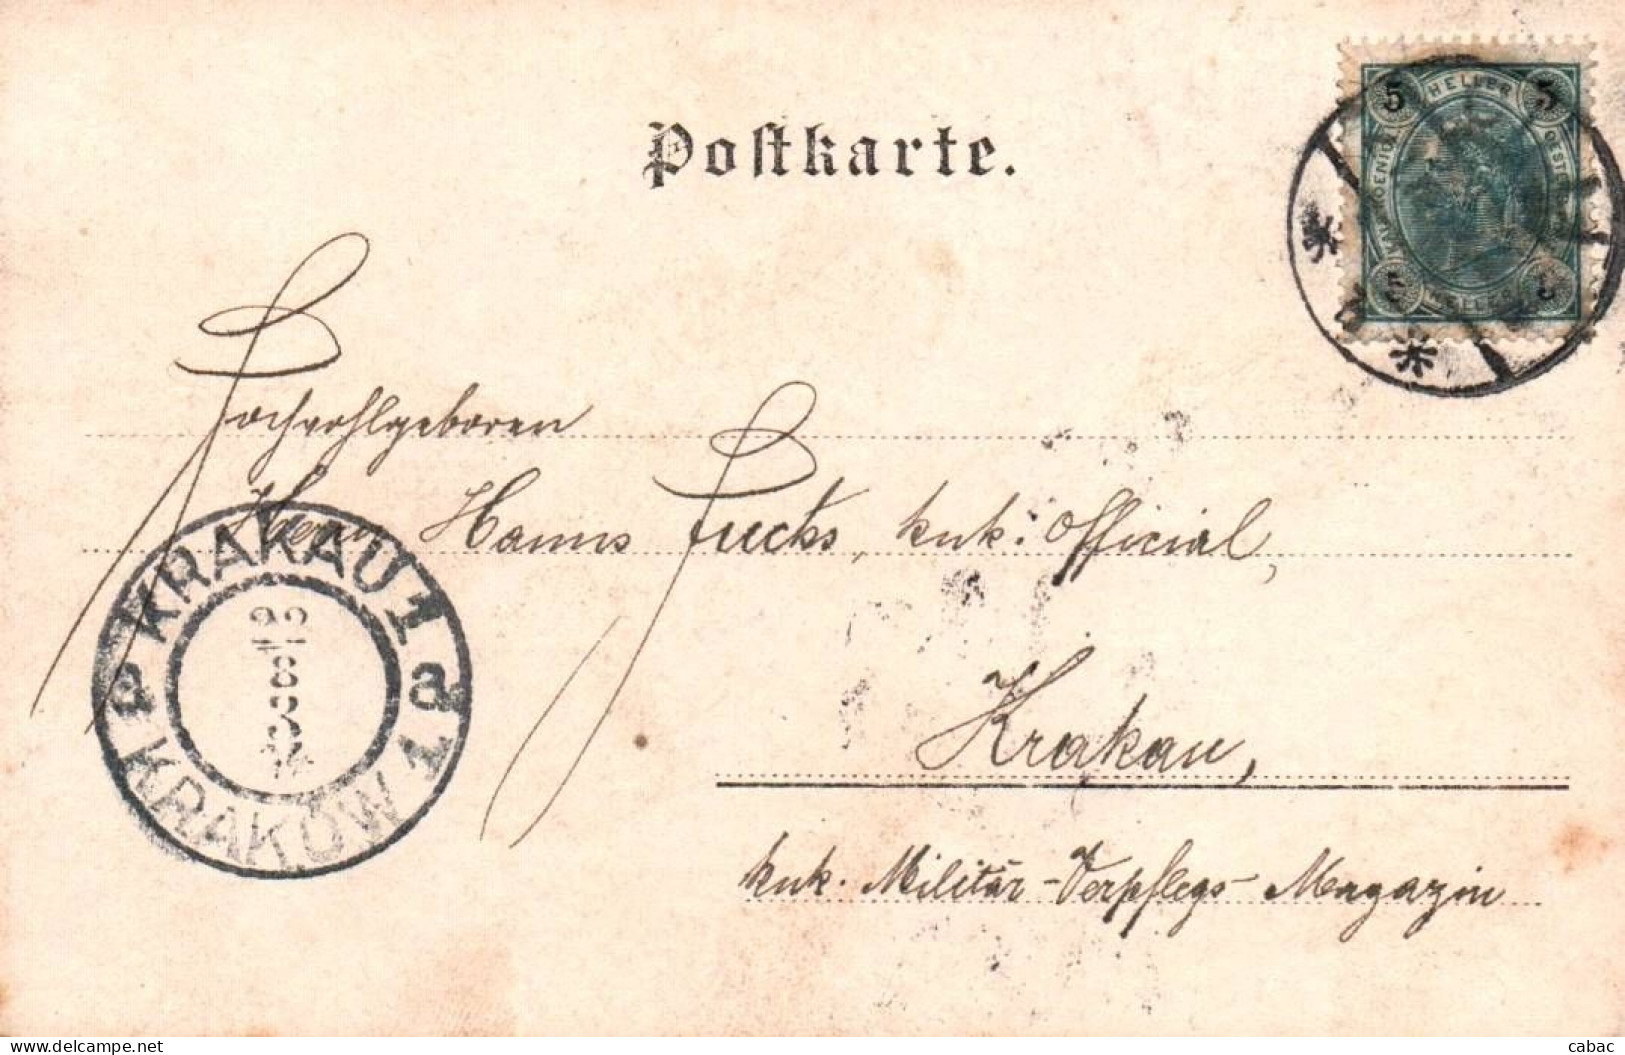 Postkarte.
5 HELLER 5
5 HELLER 5
Hochwohlgeboren
Herrn Hanns Fuchs, kuk. Official,
Krakau,
kuk. Militär-Verpflegs-Magazin
KRAKAU 1
a a
KRAKÓW 1
www.delcampe.net
cabac